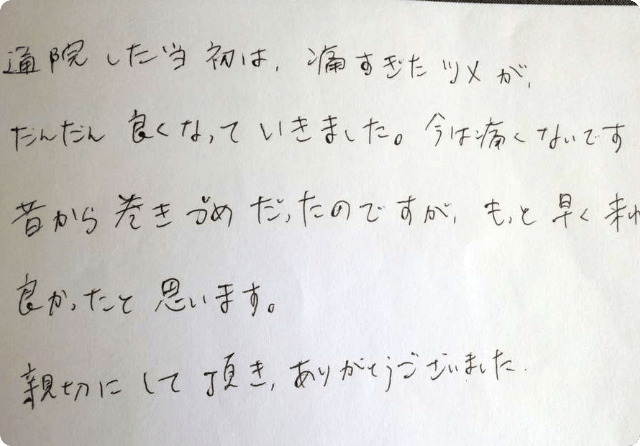 通院した当初は、痛すぎたツメが、
だんだん良くなっていきました。今は痛くないです
昔から巻きづめだったのですが、もっと早く来れ
良かったと思います。
親切にして頂き、ありがとうございました。